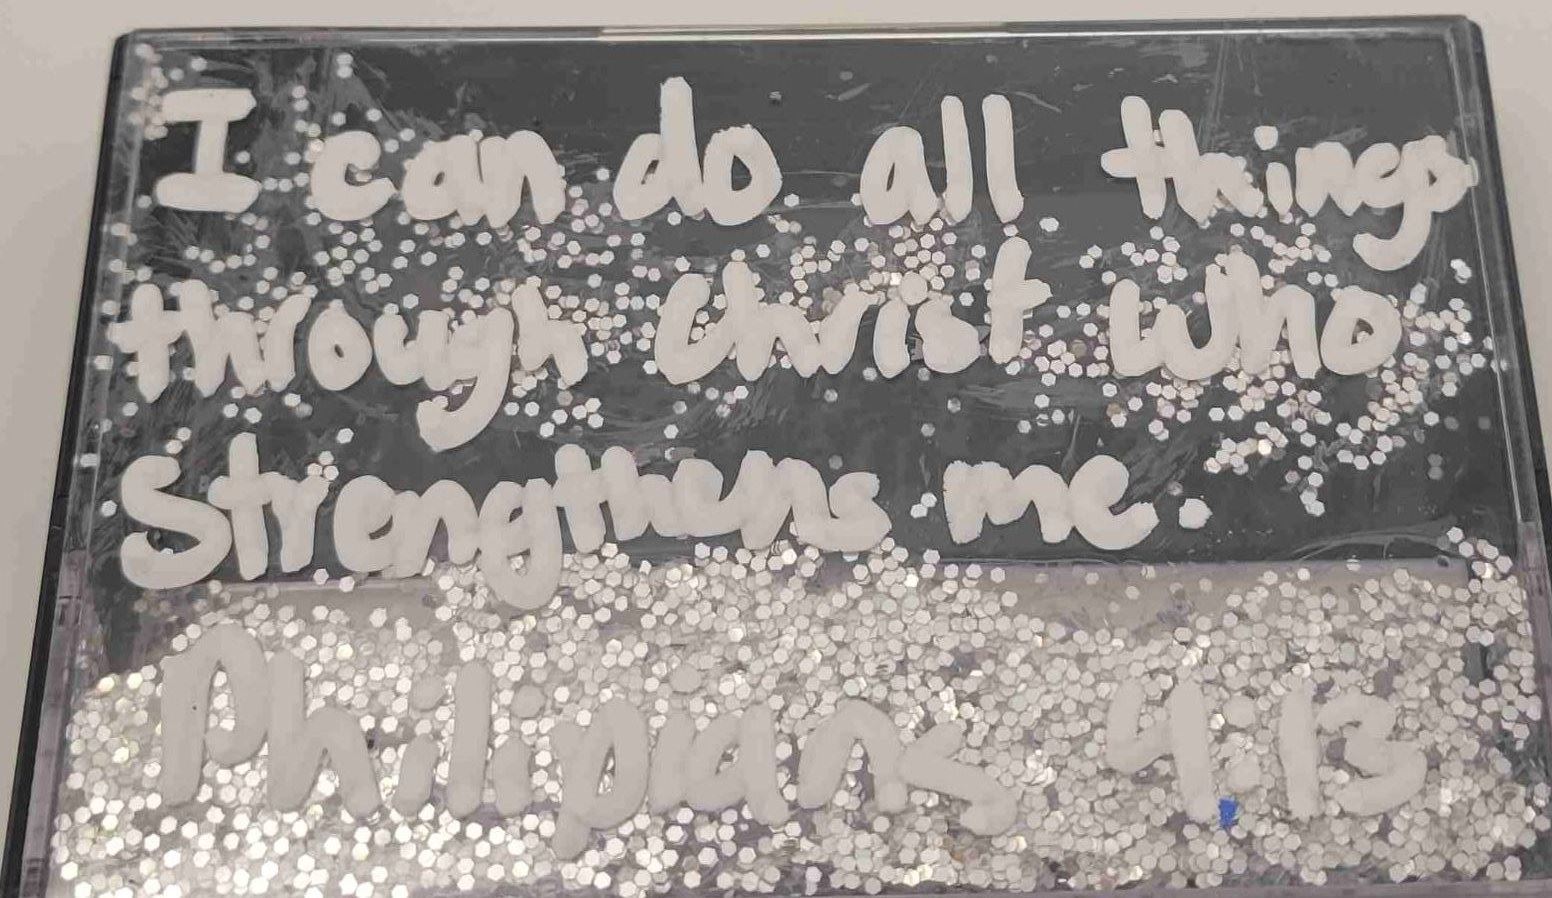 I can do all things
through Christ who
Strengthens me.
Philipians 4:13